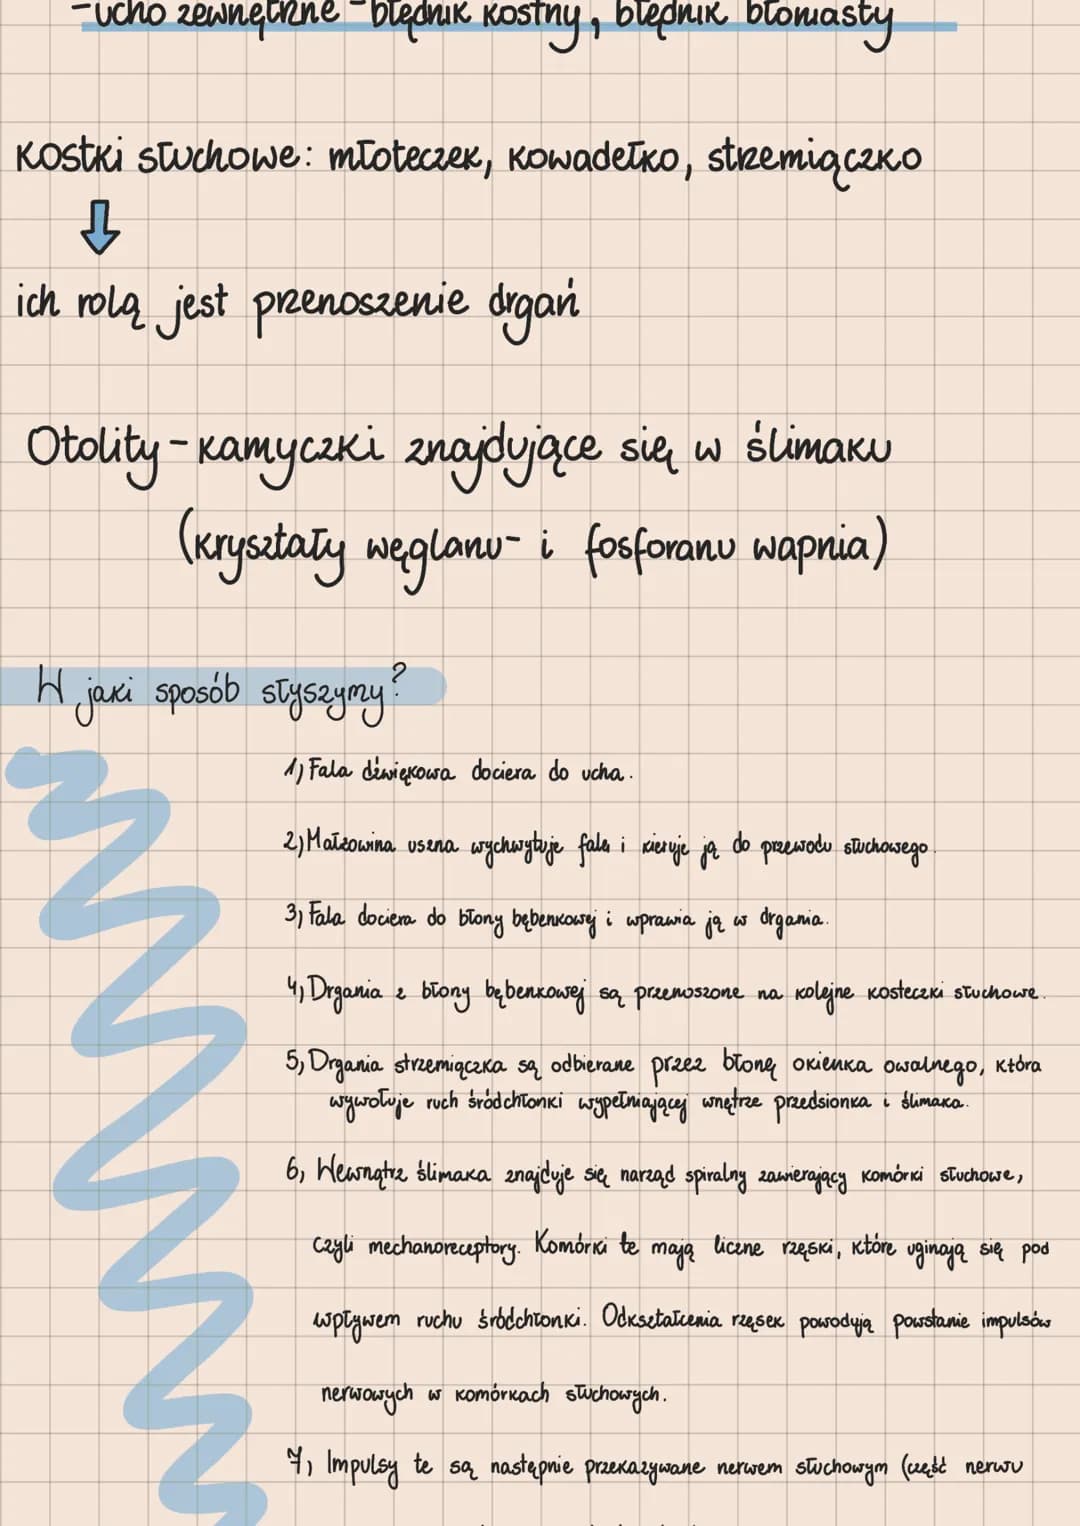 -ucho zewnętrzne - błędnik kostny, błędnik błoniasty
Kostki słuchowe: młoteczek, kowadełko, strzemiączko
ich rolą jest przenoszenie drgań
Otolity - kamyczki znajdujące się w ślimaku
(kryształy węglanu- i fosforanu wapnia)
W jaki sposób słyszymy?
1) Fala dźwiękowa dociera do ucha.
2) Małżowina uszna wychwytuje falę i kieruje ją do przewodu słuchowego.
3) Fala dociera do błony bębenkowej i wprawia ją w drgania.
4) Drgania z błony bębenkowej są przenoszone na kolejne kosteczki słuchowe.
5) Drgania strzemiączka są odbierane przez błonę okienka owalnego, która
wywołuje ruch śródchłonki wypełniającej wnętrze przedsionka i ślimaka.
6) Wewnątrz ślimaka znajduje się narząd spiralny zawierający komórki słuchowe,
czyli mechanoreceptory. Komórki te mają liczne rzęski, które uginają się pod
wpływem ruchu śródchłonki. Odkształcenia rzęsek powodują powstanie impulsów
nerwowych w komórkach słuchowych.
7) Impulsy te są następnie przekazywane nerwem słuchowym (część nerwu